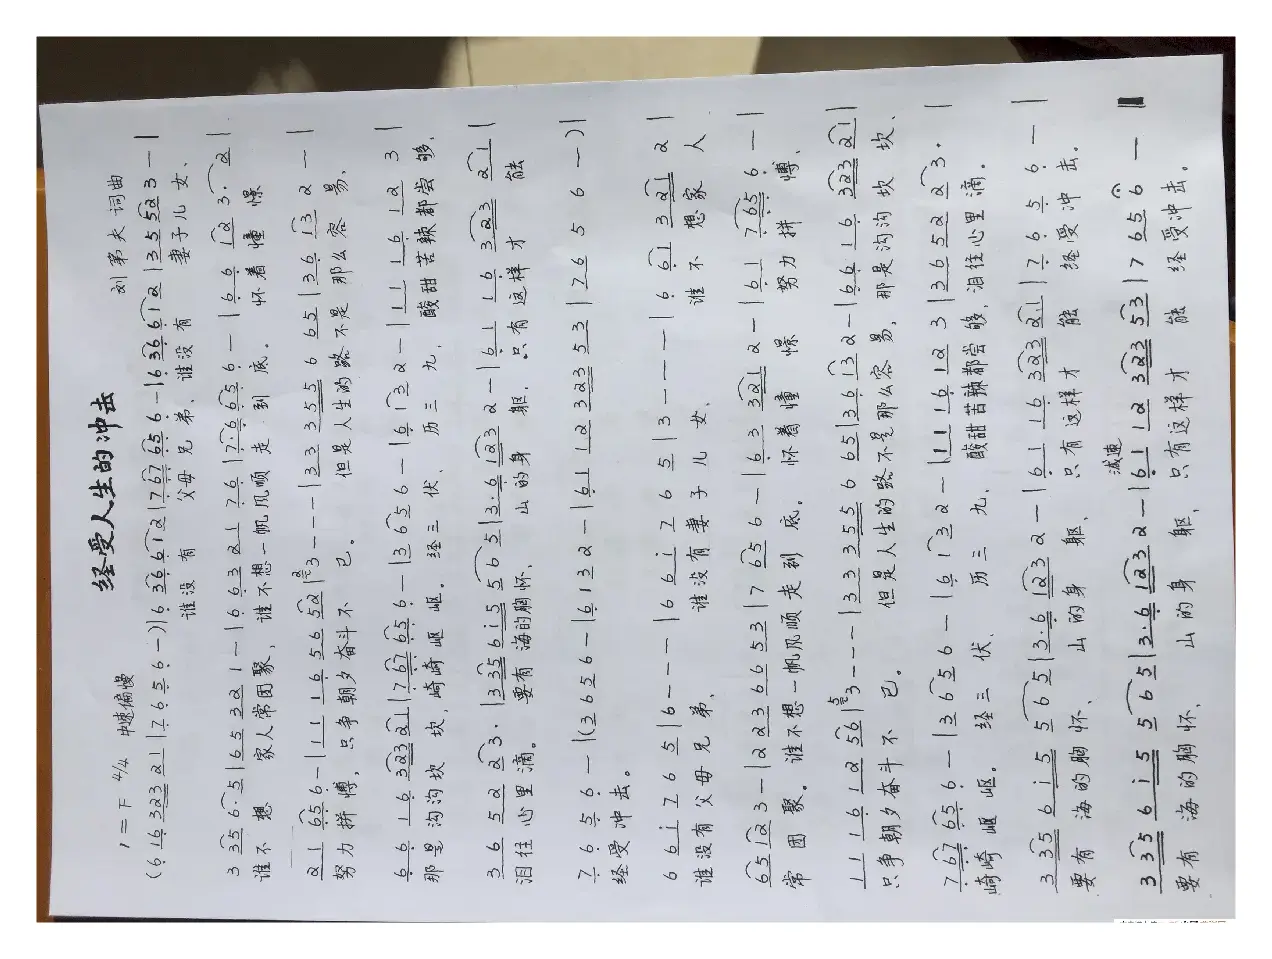 经受人生的冲击
1=F 4/4 中速偏慢 刘第夫 词曲
(6 1 6 3 2 3 2 1 | 7 6 5 6 — ) | 6 3 6 6 1 2 | 7 6 7 6 5 6 — | 6 3 6 6 1 2 | 3 5 5 5 2 3 — |
谁没 有 父母兄 弟、 谁没有 妻子儿 女、
3 3 5 6 · 5 | 6 5 3 2 1 — | 6 6 3 2 1 7 6 | 7 · 6 5 6 — | 6 6 1 2 3 · 2 |
谁不 想 家人常团聚, 谁不想一帆风顺 走 到 底。 怀着 憧 憬
2 1 6 5 6 — | 1 1 1 6 5 6 5 2 | 3 — — — | 3 3 3 5 5 5 6 6 5 | 3 6 1 3 2 — |
努力 拼 搏, 只争朝夕奋斗不 已。 但是人生的路不是 那么容 易,
6 6 1 6 3 2 3 2 1 | 7 6 7 6 5 6 — | 3 6 5 6 — | 6 1 3 2 — | 1 1 1 6 1 2 3 |
那是沟沟坎 坎, 崎崎岖 岖。 经三 伏、 历三 九、 酸甜苦辣都尝够,
3 6 5 2 2 3 · | 3 3 5 6 i 5 5 6 5 | 3 · 6 1 2 3 2 — | 6 1 1 6 3 2 3 2 1 |
泪往心里滴。 要有 海的胸怀、 山的身 躯, 只有这样才 能
7 6 5 6 — | (3 6 5 6 — | 6 1 3 2 — | 6 1 1 2 3 2 3 5 3 | 7 6 5 6 — ) |
经受冲击。
6 6 i 7 6 5 | 6 — — — | 6 6 i 7 6 5 | 3 — — — | 6 6 1 3 2 1 2 |
谁没有父母兄 弟、 谁没有妻子儿 女、 谁不 想家人
6 5 1 2 3 — | 2 2 3 6 6 5 3 | 7 6 5 6 — | 6 3 3 2 1 2 — | 6 1 7 6 5 6 — |
常 团 聚。 谁不想一帆风顺走到 底。 怀着憧 憬 努力拼 搏、
1 1 1 6 1 2 5 6 | 3 — — — | 3 3 3 5 5 5 6 6 5 | 3 6 1 3 2 — | 6 6 1 6 3 2 3 2 1 |
只争朝夕奋斗不 已。 但是人生的路不是那么容 易, 那是沟沟坎 坎、
7 6 7 6 5 6 — | 3 6 5 6 — | 6 1 3 2 — | 1 1 1 6 1 2 3 | 3 6 5 2 2 3 · |
崎崎岖 岖。 经三 伏、 历三 九、 酸甜苦辣都尝够,泪往心里滴。
3 3 5 6 i 5 5 6 5 | 3 · 6 1 2 3 2 — | 6 1 1 6 3 2 3 2 1 | 7 6 5 6 — |
要有 海的胸怀、 山的身 躯、 只有这样才 能 经受冲 击。
减速
3 3 5 6 i 5 5 6 5 | 3 · 6 1 2 3 2 — | 6 1 1 2 3 2 3 5 3 | 7 6 5 6 — ‖
要有 海的胸怀、 山的身 躯、 只有这样才 能 经受冲击。